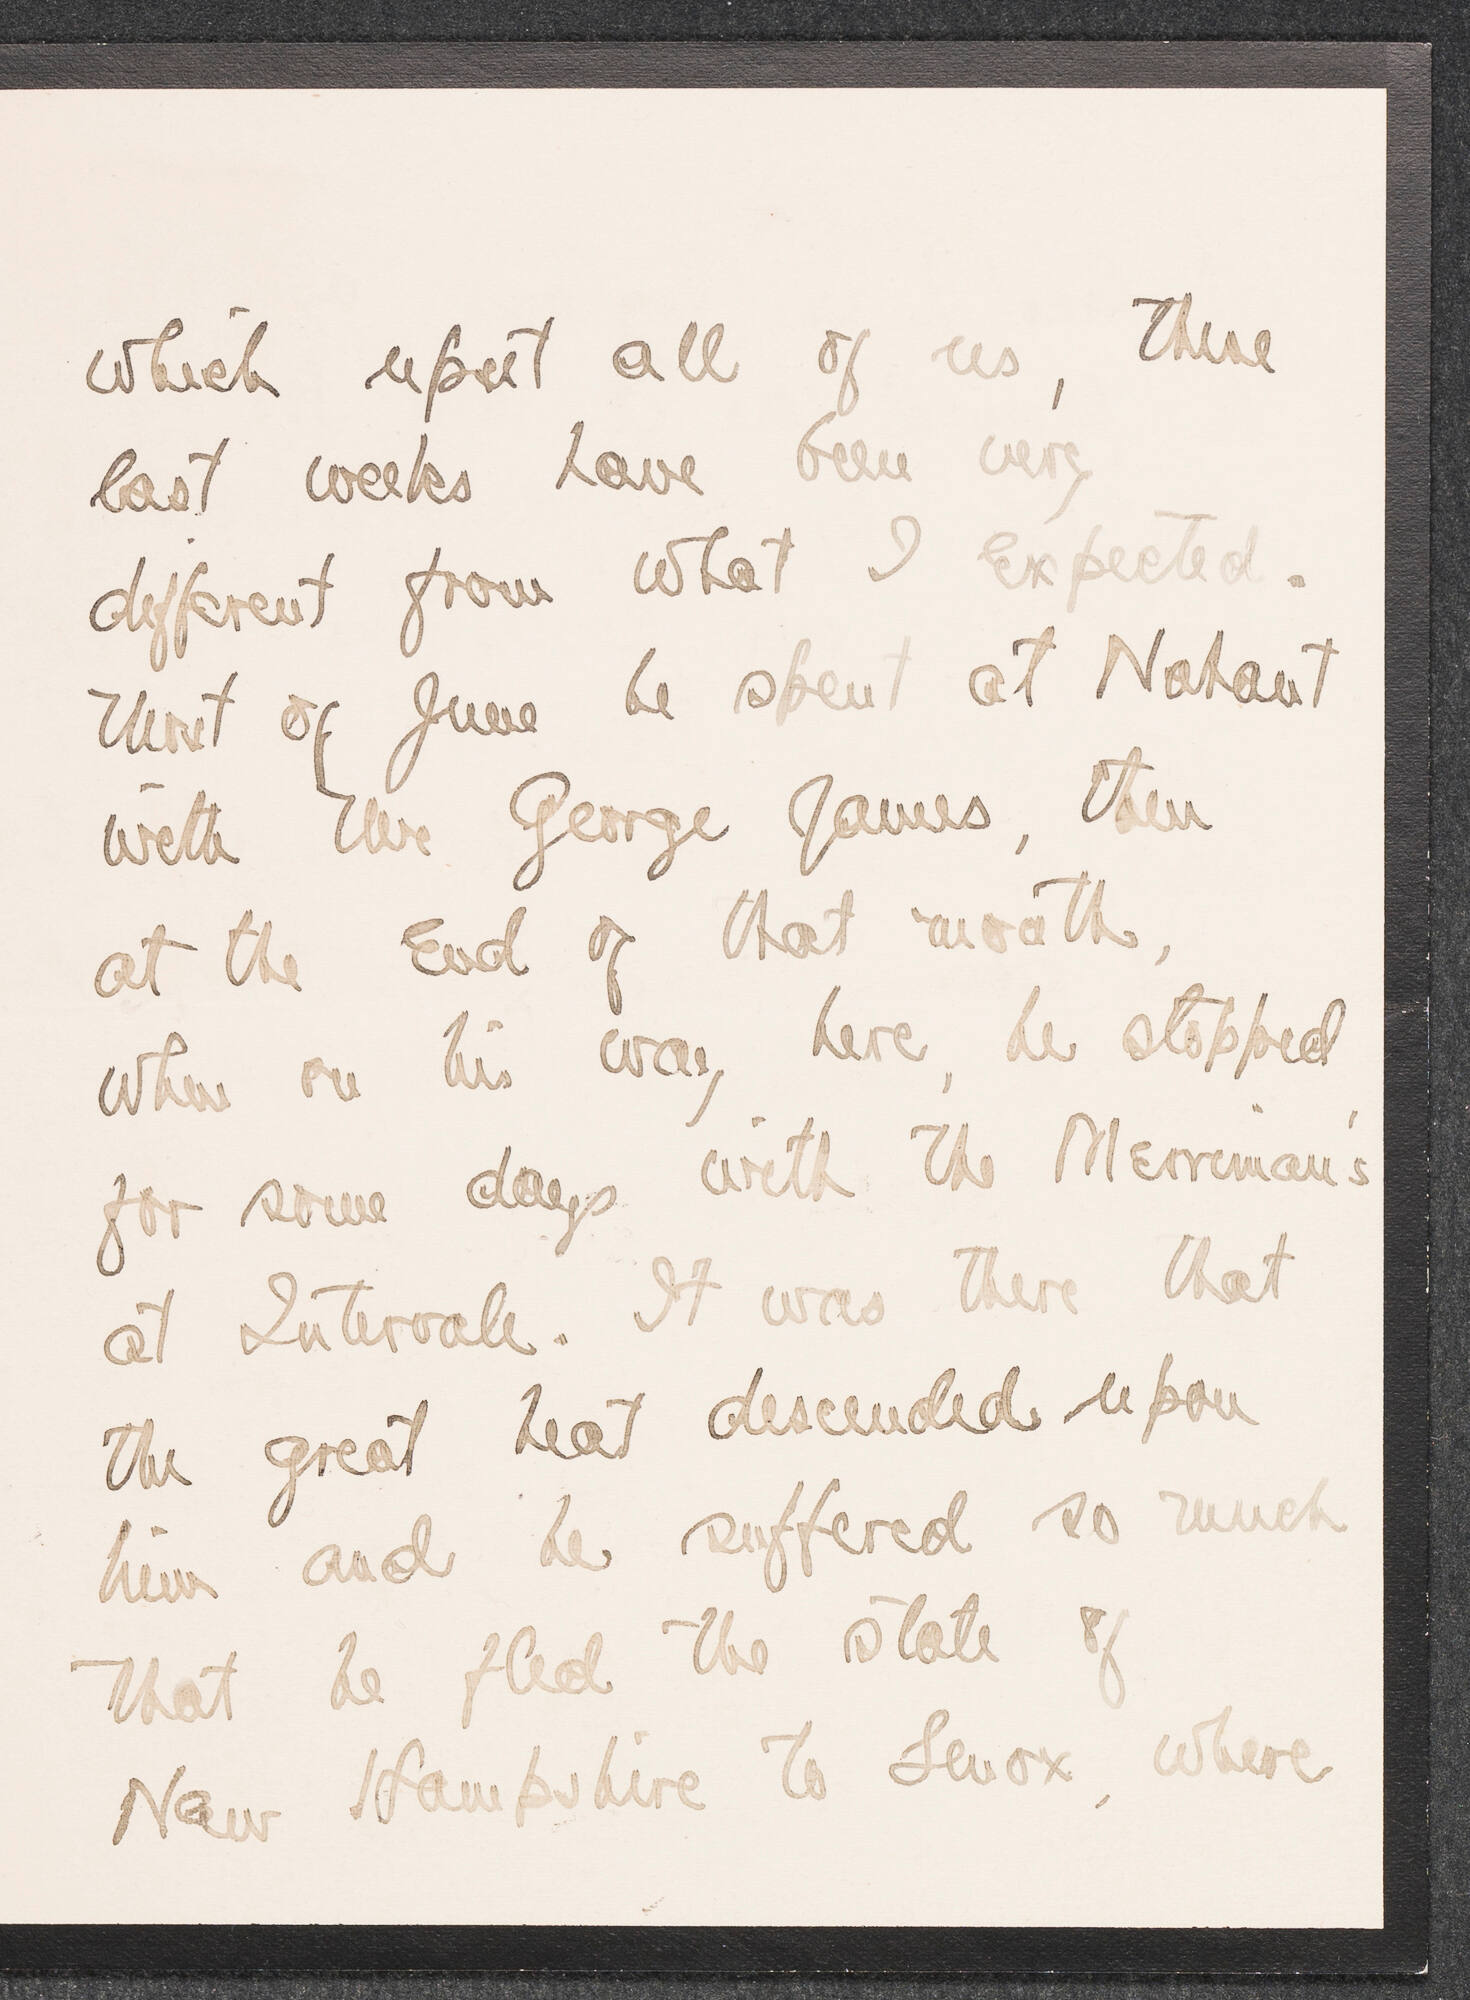 which upset all of us, these
last weeks have been very
different from what I expected.
Most of June he spent at Nahant
with Mrs George James, then
at the End of that month,
when on his way here, he stopped
for some days with the Merriman's
at Intervale. It was there that
the great heat descended upon
him and he suffered so much
that he fled the state of
New Hampshire to Lenox, where